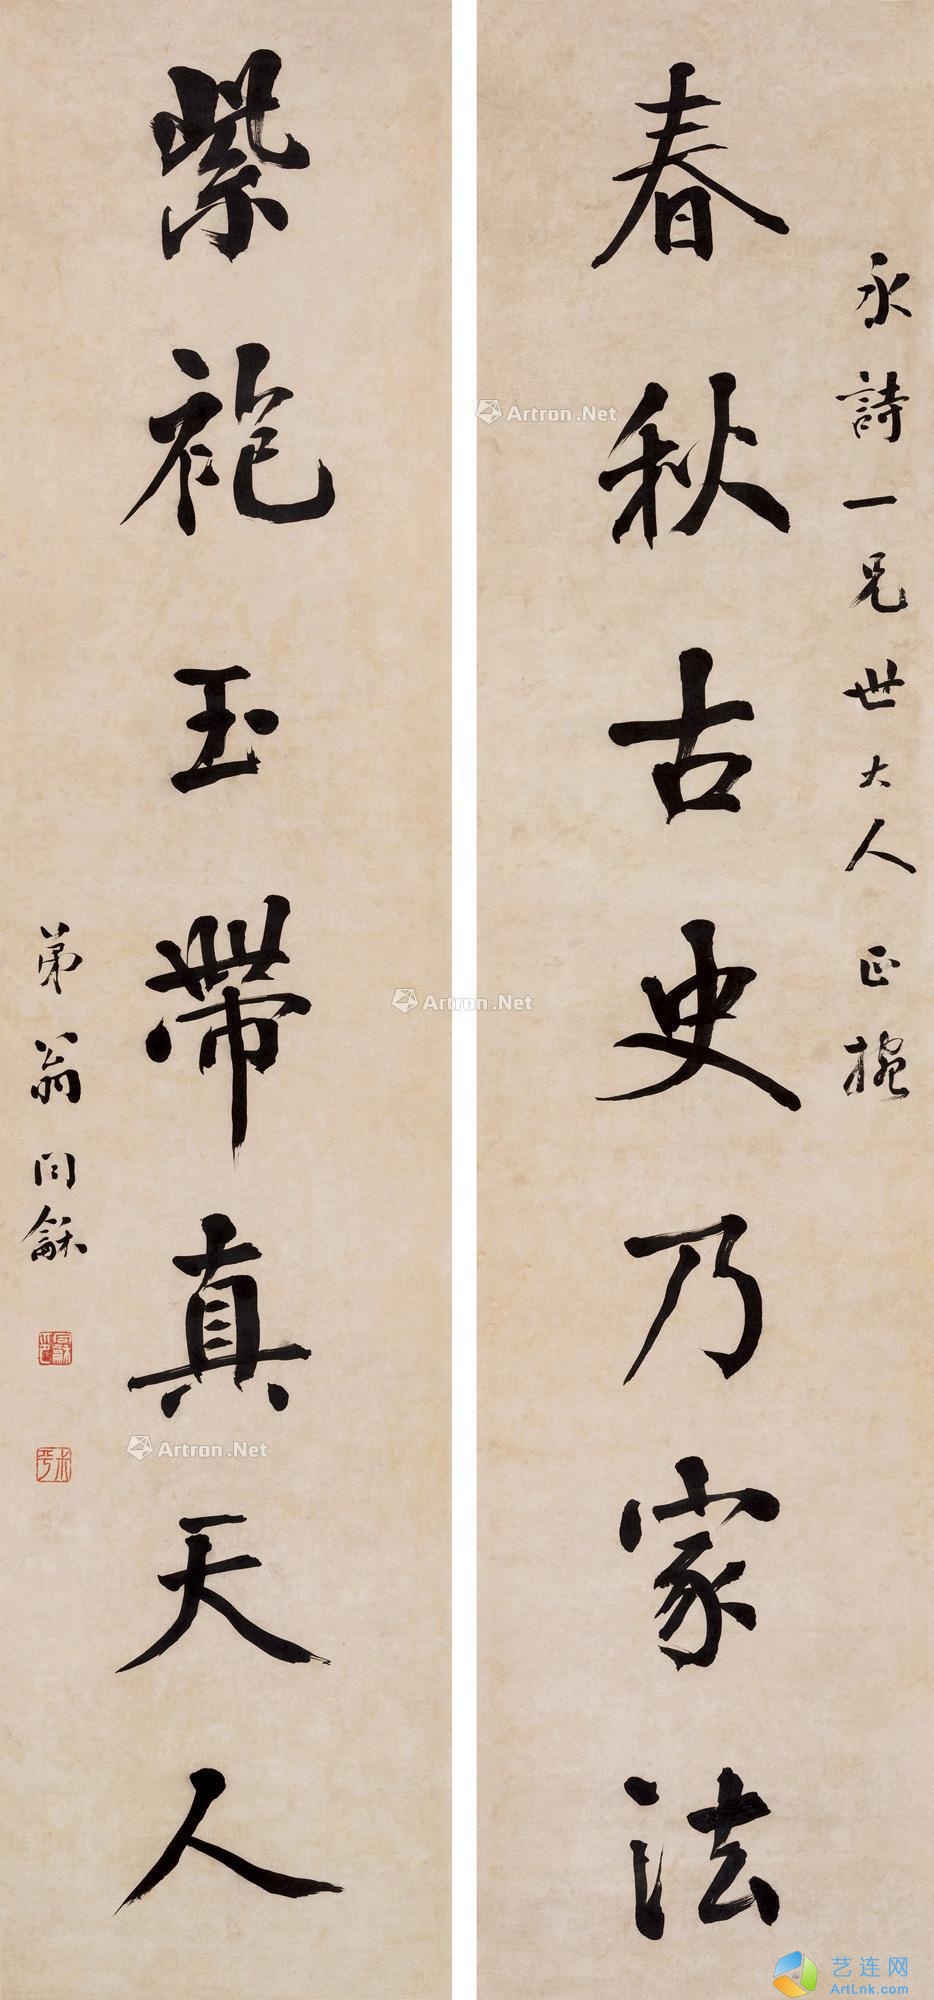 永詩一兄世大人正捥
春秋古史乃家法
紫袍玉帶真天人
弟翁同龢
Artron.Net
Artron.Net
Artron.Net
艺连网
ArtLnk.com